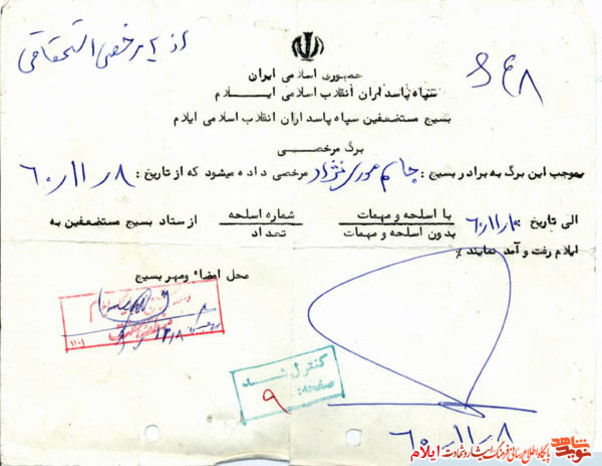 از ایر خصی استحقاقی
۶۴۸
جمهوری اسلامی ایران
سپاه پاسداران انقلاب اسلامی ایـــلام
بسیج مستضعفین سپاه پاسداران انقلاب اسلامی ایلام
برگ مرخصـــی
بموجب این برگ به برادر بسیج : جاسم موری نژاد مرخصی داده میشود که از تاریخ : ۶۰/۱۱/۸
الی تاریخ ۶۰/۱۱/ با اسلحه و مهمات شماره اسلحه از ستاد بسیج مستضعفین به
بدون اسلحه و مهمات تعداد
ایلام رفت و آمد نمایند %
محل امضاء ومهر بسیج
کنترل شد
صفحه: ۹
۶۰-۱۱-۸
نوید شاهد پایگاه اطلاع رسانی فرهنگ ایثار و شهادت ایلام